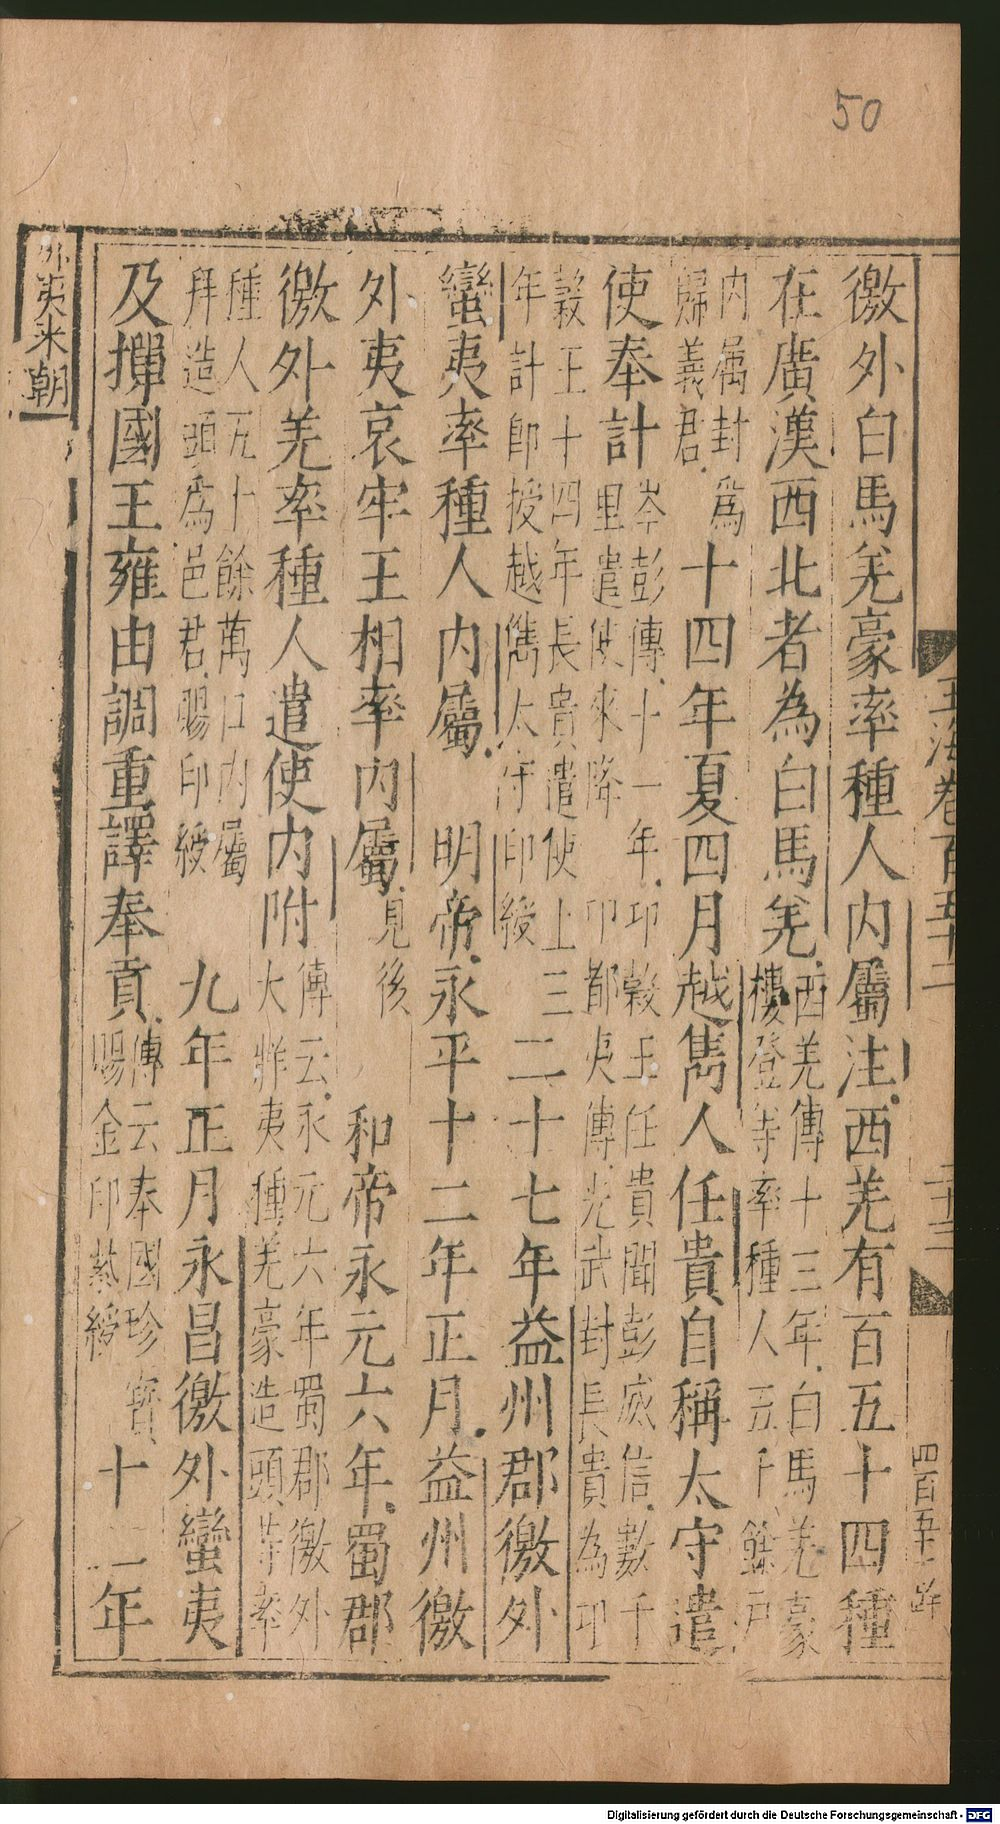 50
徼外白馬羌豪率種人內屬注西羌有百五十四種
在廣漢西北者為白馬羌西羌傳十三年白馬羌豪
樓登等率種人五千餘戶
內屬封爲
歸義君十四年夏四月越雋人任貴自稱太守遣
使奉計岑彭傳十一年卭穀王任貴聞彭威信數千
里遣使來降卭都夷傳光武封長貴為卭
穀王十四年長貴遣使上三
年計即授越雋太守印綬二十七年益州郡徼外
蠻夷率種人內屬 明帝永平十二年正月益州徼
外夷哀牢王相率內屬見後 和帝永元六年蜀郡
徼外羌率種人遣使內附傳云永元六年蜀郡徼外
大牂夷種羌豪造頭等率
種人五十餘萬口內屬
拜造頭爲邑君賜印綬 九年正月永昌徼外蠻夷
及撣國王雍由調重譯奉貢傳云奉國珍寳
賜金印紫綬十二年
外夷来朝
玉海卷百五十二
二十三
四百五十
Digitalisierung gefördert durch die Deutsche Forschungsgemeinschaft - DFG